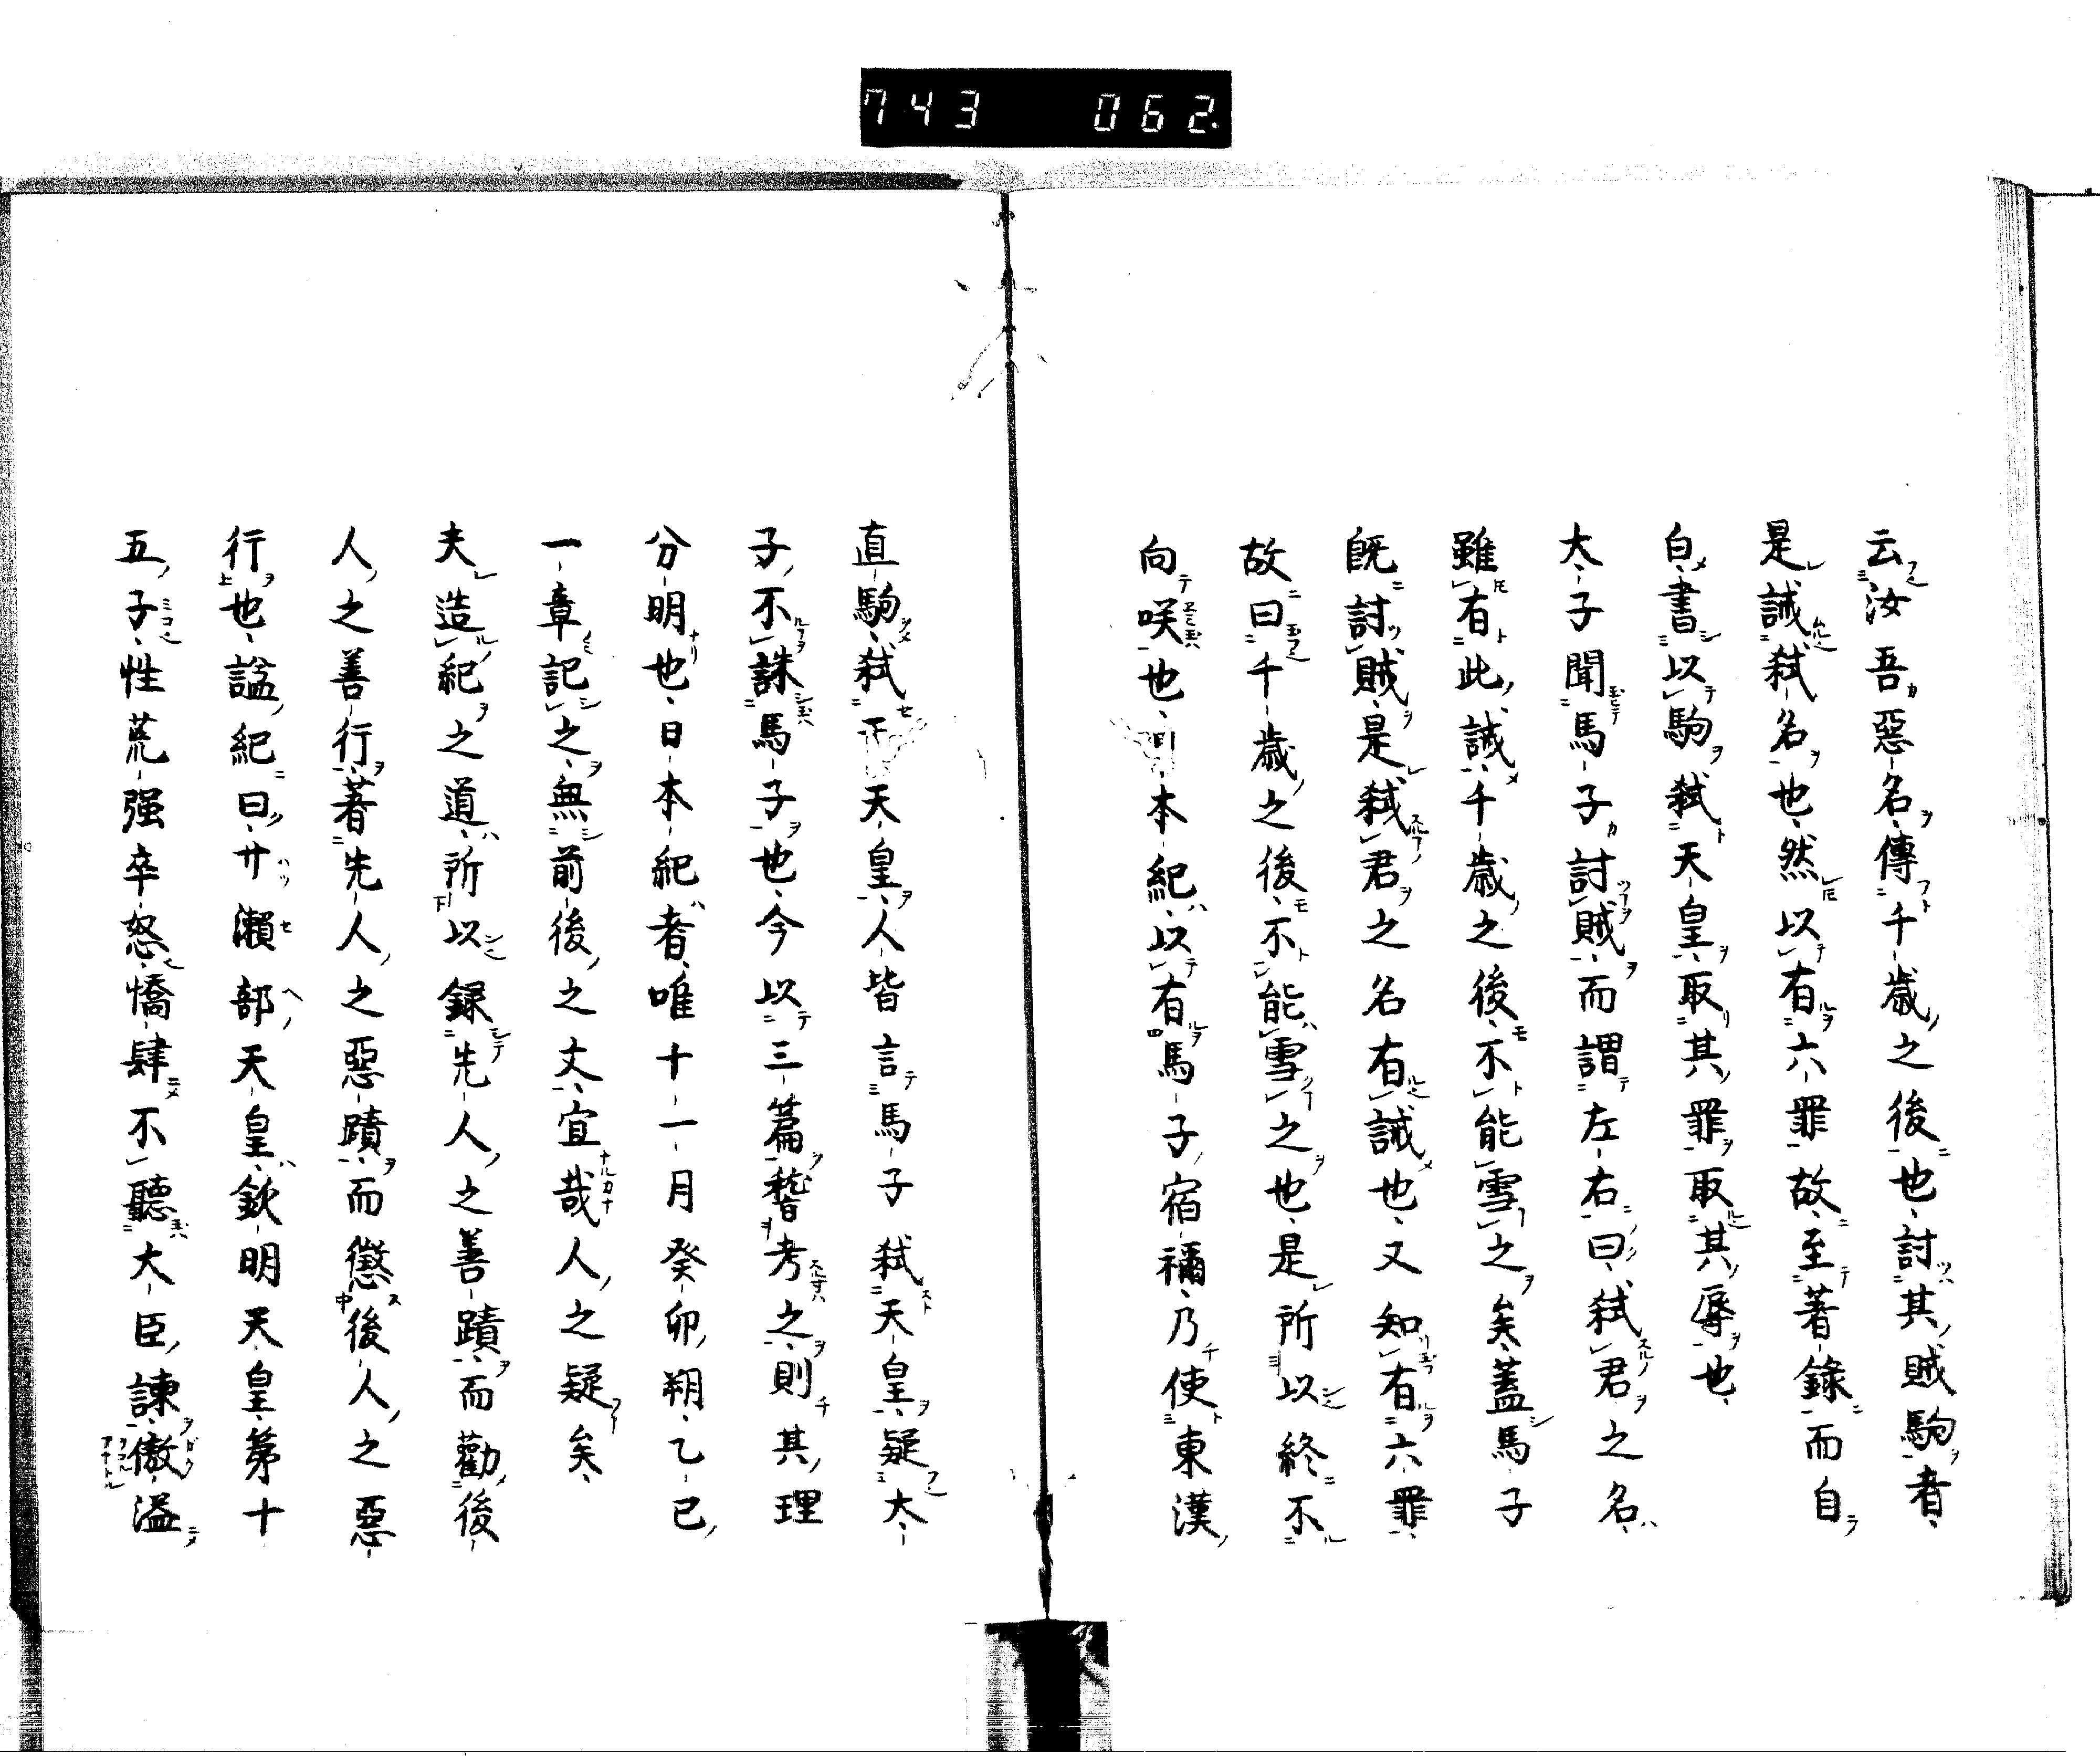 743 062
云汝吾惡名傳千歳之後也討其賊駒者
是誡弑名也然以有六罪故至著錄而自
白書以駒弑天皇取其罪取其辱也
太子聞馬子討賊而謂左右曰弑君之名
雖有此誡千歳之後不能雪之矣蓋馬子
既討賊是弑君之名有誡也又知有六罪
故曰千歳之後不能雪之也是所以終不
向咲也本紀以有馬子宿禰乃使東漢
直駒弑天皇人皆言馬子弑天皇疑太
子不誅馬子也今以三篇稽考之則其理
分明也日本紀者唯十一月癸卯朔乙巳
一章記之無前後之文宜哉人之疑矣
夫造紀之道所以録先人之善蹟而勸後
人之善行著先人之惡蹟而懲後人之惡
行也謚紀曰廿瀬部天皇欽明天皇第十
五子性荒强卒怒憍肆不聽大臣諫傲溢